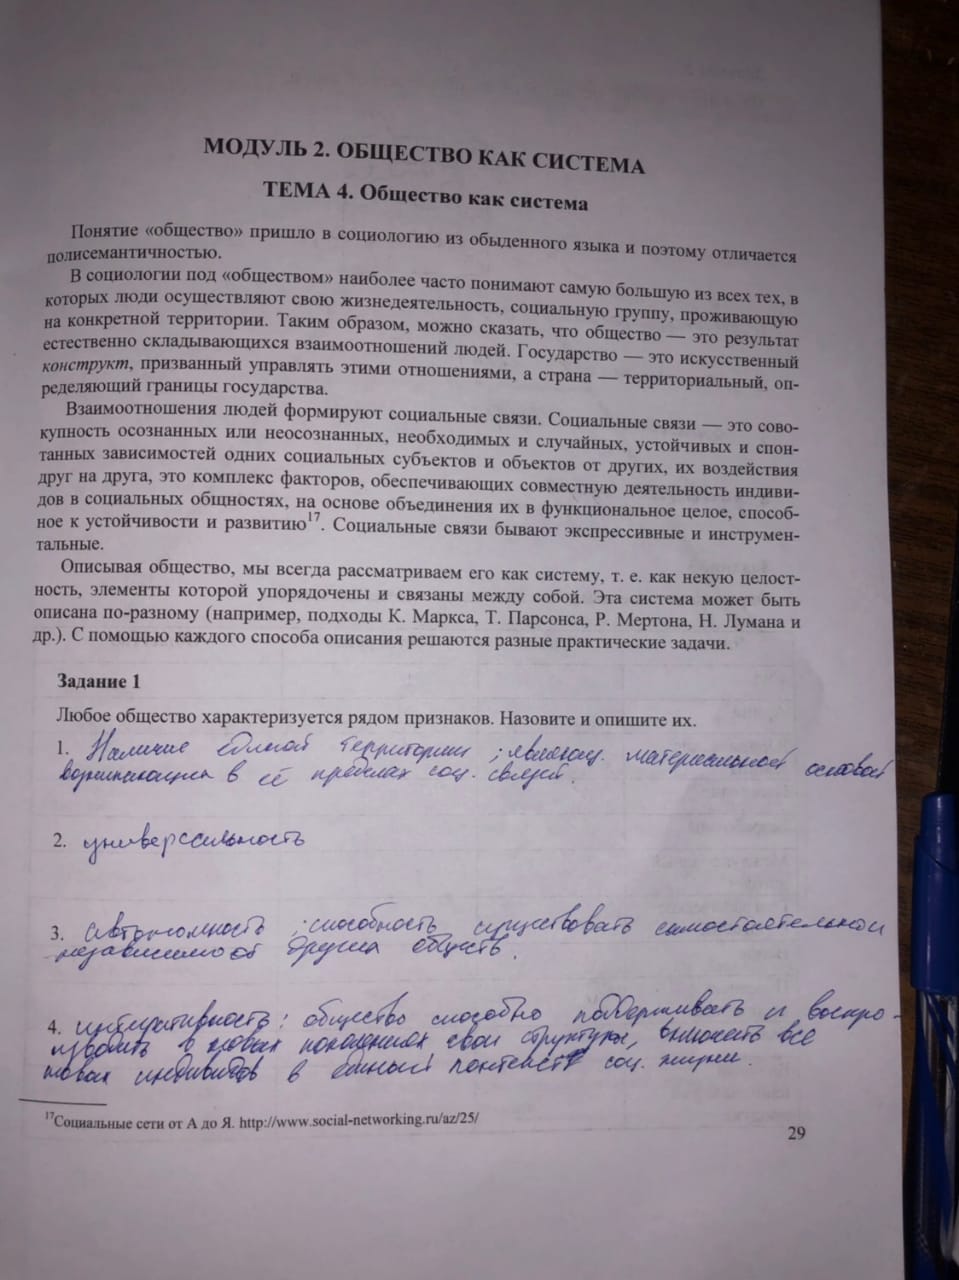 МОДУЛЬ 2. ОБЩЕСТВО КАК СИСТЕМА
ТЕМА 4. Общество как система
Понятие «общество» пришло в социологию из обыденного языка и поэтому отличается
полисемантичностью.
В социологии под «обществом» наиболее часто понимают самую большую из всех тех, в
которых люди осуществляют свою жизнедеятельность, социальную группу, проживающую
на конкретной территории. Таким образом, можно сказать, что общество — это результат
естественно складывающихся взаимоотношений людей. Государство — это искусственный
конструкт, призванный управлять этими отношениями, а страна — территориальный, оп-
ределяющий границы государства.
Взаимоотношения людей формируют социальные связи. Социальные связи — это сово-
купность осознанных или неосознанных, необходимых и случайных, устойчивых и спон-
танных зависимостей одних социальных субъектов и объектов от других, их воздействия
друг на друга, это комплекс факторов, обеспечивающих совместную деятельность индиви-
дов в социальных общностях, на основе объединения их в функциональное целое, способ-
ное к устойчивости и развитию17. Социальные связи бывают экспрессивные и инструмен-
тальные.
Описывая общество, мы всегда рассматриваем его как систему, т. е. как некую целост-
ность, элементы которой упорядочены и связаны между собой. Эта система может быть
описана по-разному (например, подходы К. Маркса, Т. Парсонса, Р. Мертона, Н. Лумана и
др.). С помощью каждого способа описания решаются разные практические задачи.
Задание 1
Любое общество характеризуется рядом признаков. Назовите и опишите их.
1. Наличие единой территории, являющ. материальной основой
возникающих в её пределах соц. связей.
2. универсальность
3. автономность: способность существовать самостоятельно и
независимо от других обществ.
4. интегративность: общество способно поддерживать и воспро-
изводить в новых поколениях свои структуры, включать все
новых индивидов в единый контекст соц. жизни.
17Социальные сети от А до Я. http://www.social-networking.ru/az/25/
29